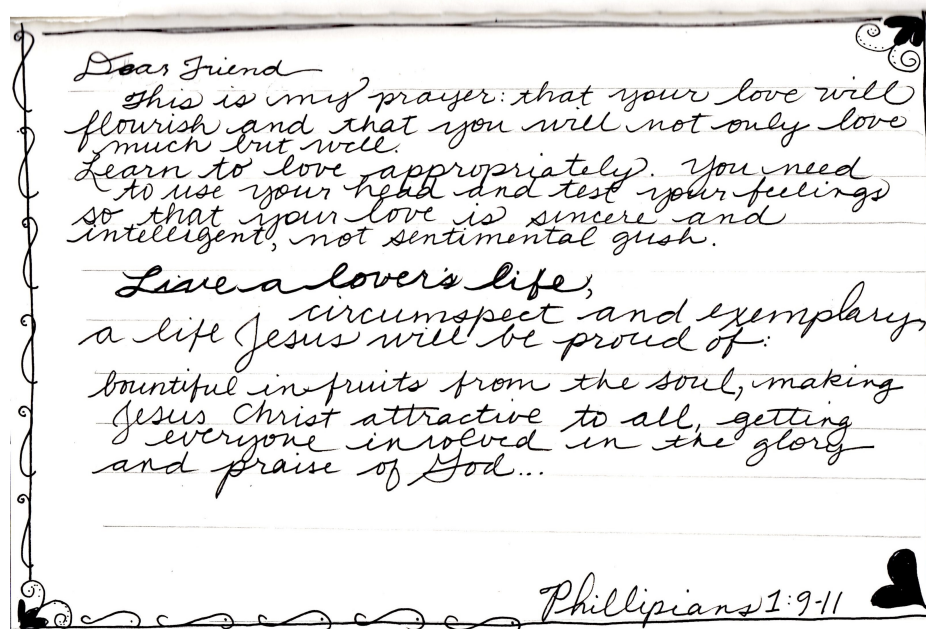 Dear Friend
This is my prayer: that your love will
flourish and that you will not only love
much but well.
Learn to love appropriately. You need
to use your head and test your feelings
so that your love is sincere and
intelligent, not sentimental gush.
Live a lover's life,
circumspect and exemplary,
a life Jesus will be proud of:
bountiful in fruits from the soul, making
Jesus Christ attractive to all, getting
everyone involved in the glory
and praise of God...
Phillipians 1:9-11